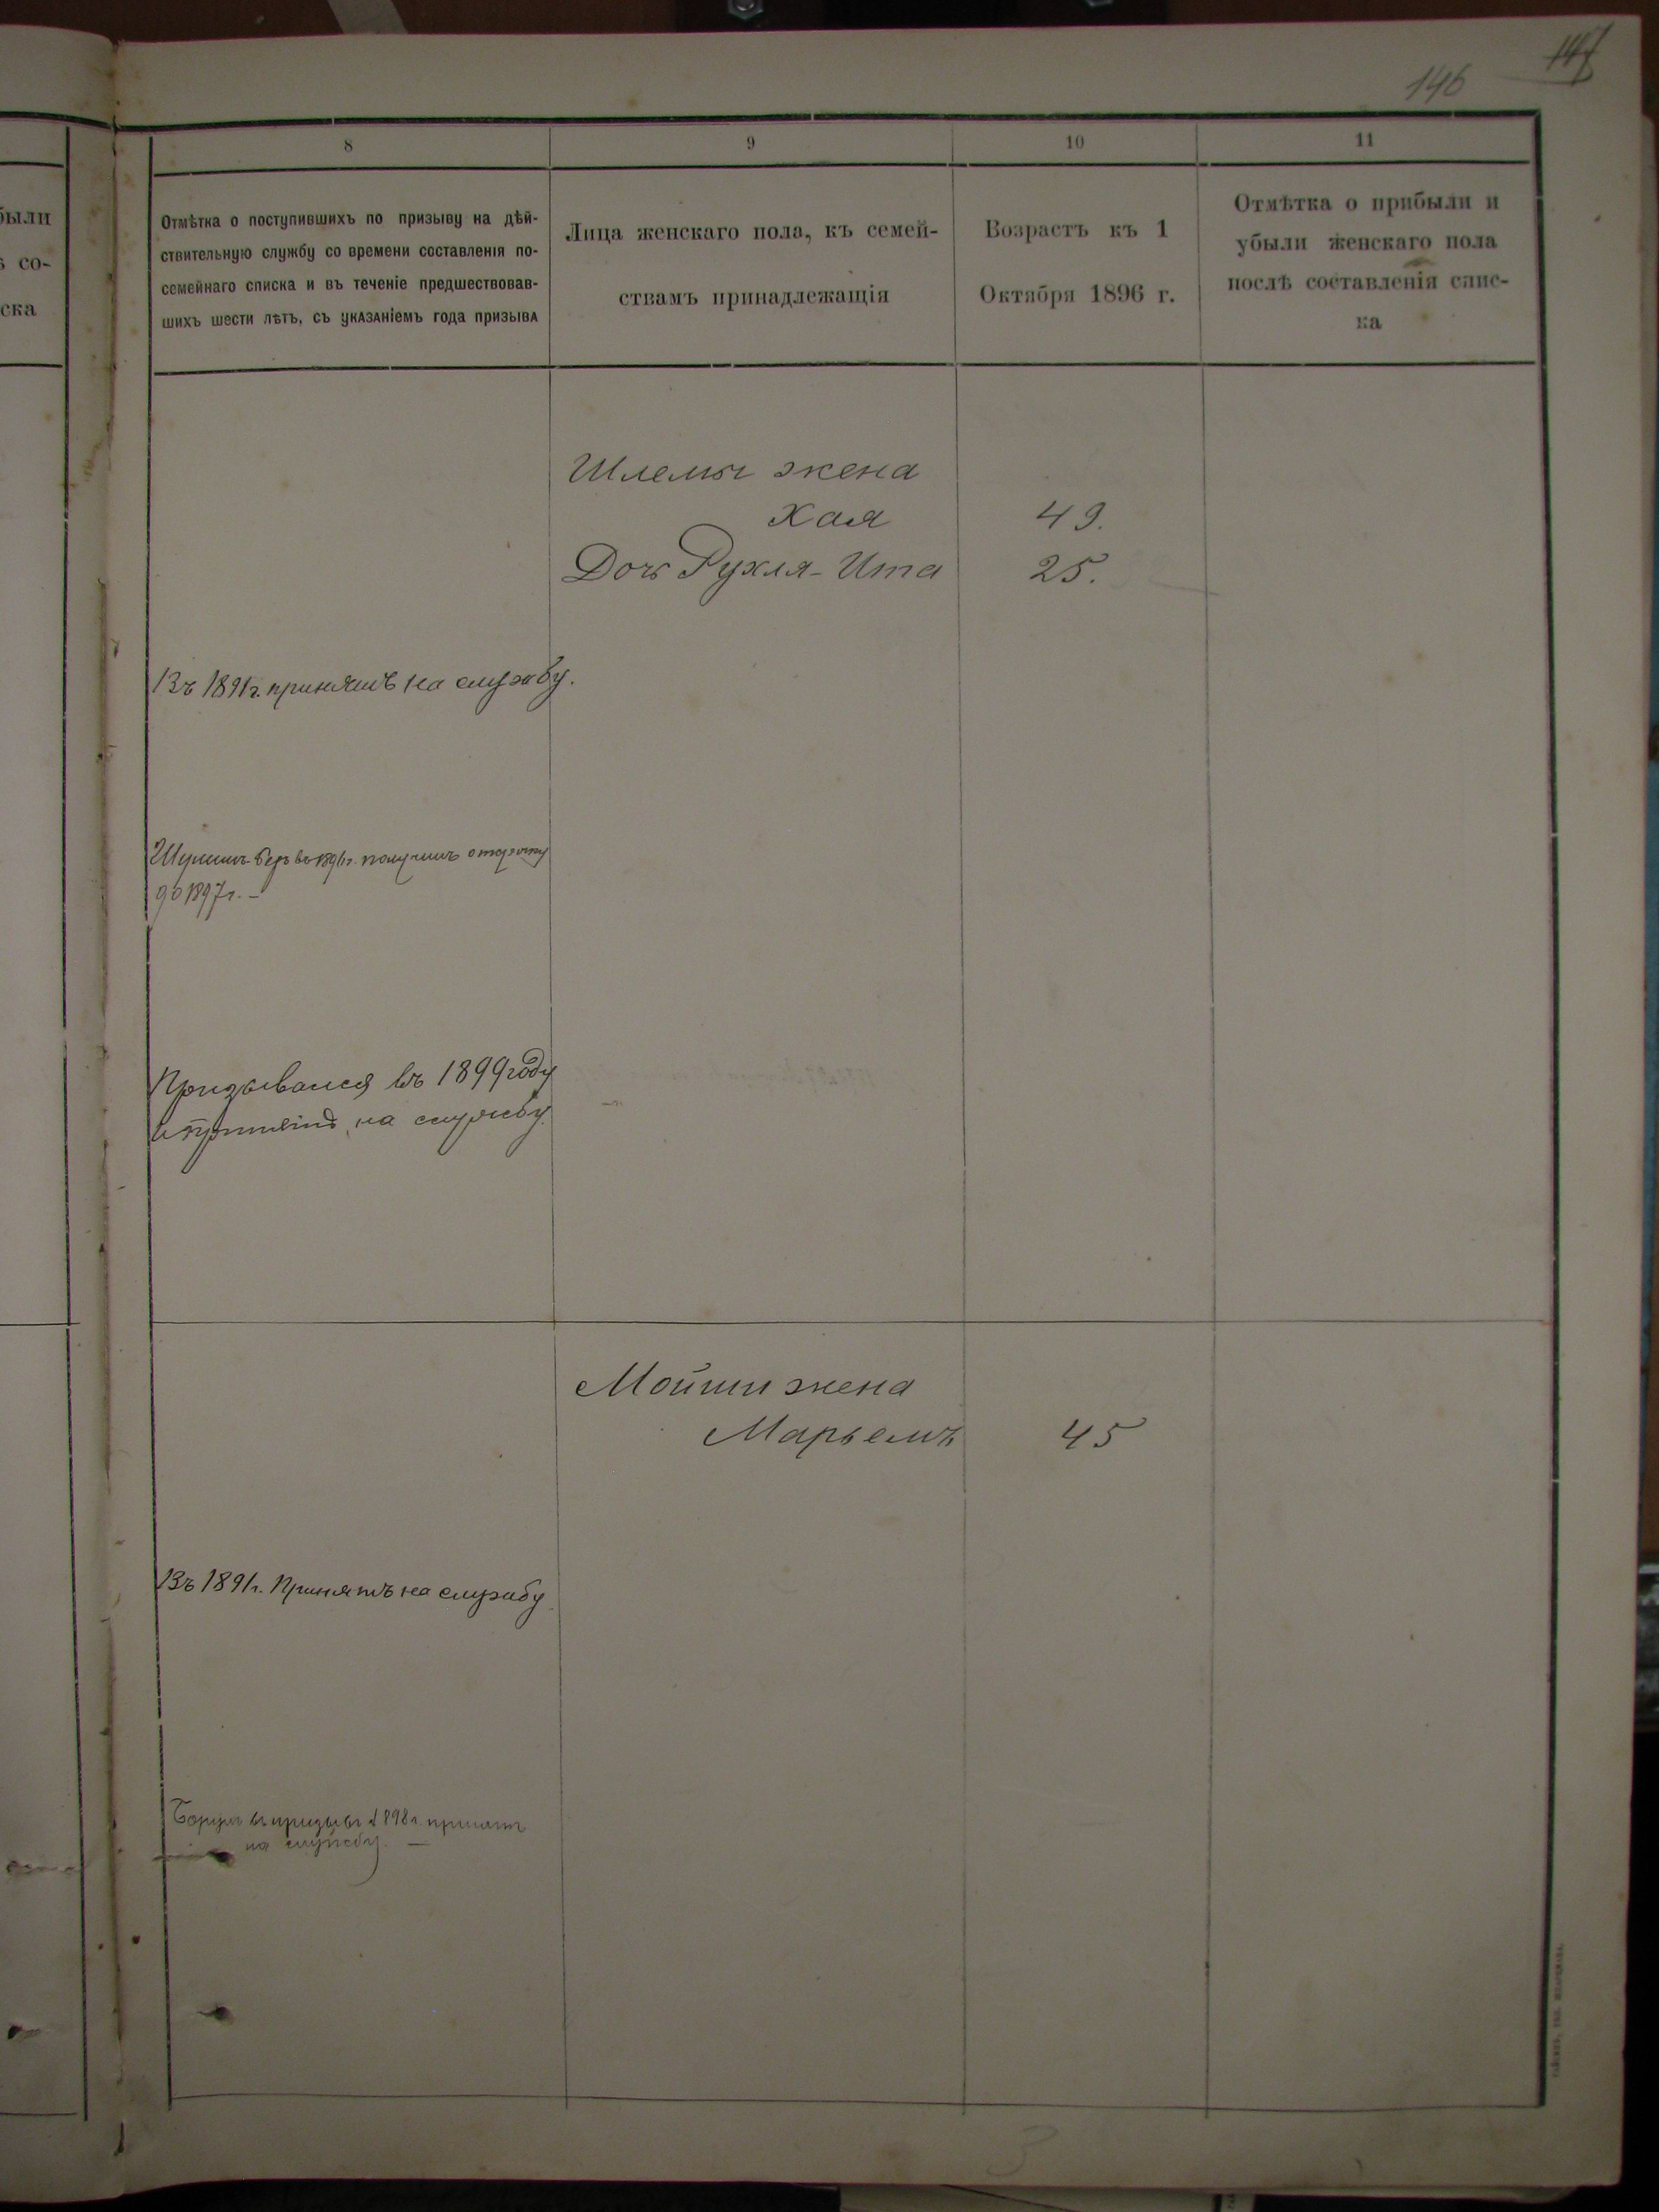 147
146
были
ъ со-
ска
8
9
10
11
Отмѣтка о поступившихъ по призыву на дѣй-
ствительную службу со времени составленія по-
семейнаго списка и въ теченіе предшествовав-
шихъ шести лѣтъ, съ указаніемъ года призыва
Лица женскаго пола, къ семей-
ствамъ принадлежащія
Возрастъ къ 1
Октября 1896 г.
Отмѣтка о прибыли и
убыли женскаго пола
послѣ составленія спис-
ка
Шлемы жена
Хая 49.
Дочь Рухля-Ита 25.
Въ 1891г. принятъ на службу.
Беръ въ 1891г. получилъ отсрочку
до 1897г. –
Призывался въ 1899 году
и принятъ на службу.
Мойши жена
Марьемъ 45
Въ 1891г. Принятъ на службу
Борухъ въ призывъ 1898г. принятъ
на службу. —